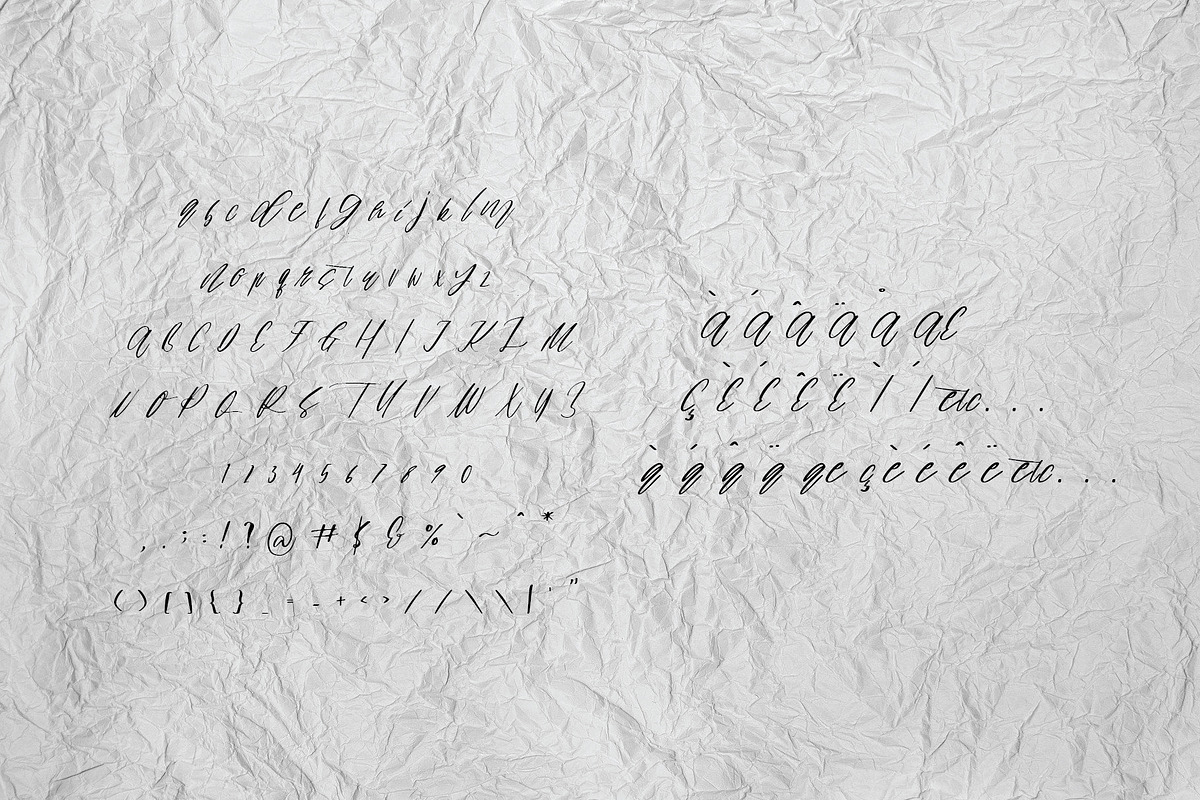 a b c d e f g h i j k l m
n o p q r s t u v w x y z
A B C D E F G H I J K L M
N O P Q R S T U V W X Y Z
1 2 3 4 5 6 7 8 9 0
, . ; : ! ? @ # $ & % ` ~ ^ *
( ) [ ] { } _ = - + < > / / \ \ | ' "
À Á Â Ä Å Æ
Ç È É Ê Ë Ì Í etc. . .
à á â ä æ ç è é ê ë etc. . .